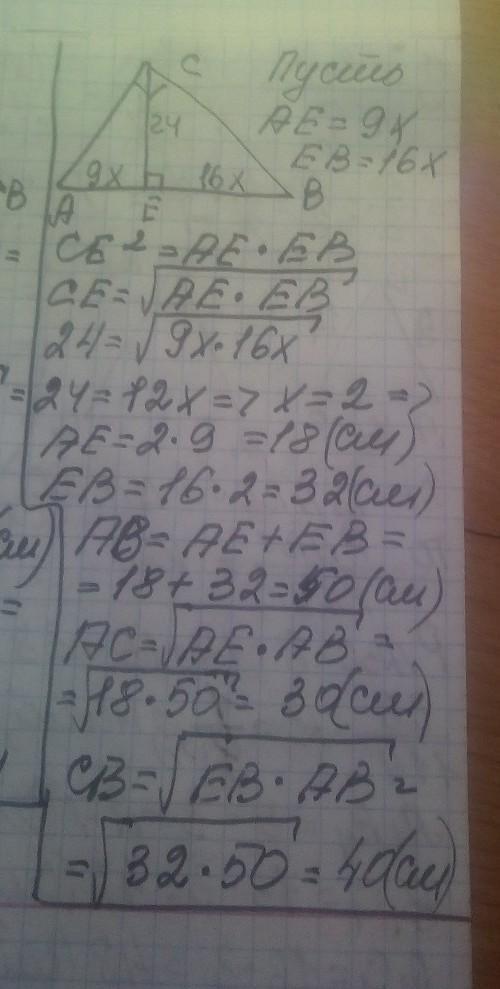 C
Пусть
24
AE = 9x
EB = 16x
9x
16x
B
A
E
B
CE² = AE · EB
=
CE = √AE · EB
24 = √9x · 16x
24 = 12x => x = 2 =>
=
AE = 2 · 9 = 18 (см)
EB = 16 · 2 = 32 (см)
см)
AB = AE + EB =
= 18 + 32 = 50 (см)
=
AC = √AE · AB =
= √18 · 50 = 30 (см)
CB = √EB · AB =
= √32 · 50 = 40 (см)